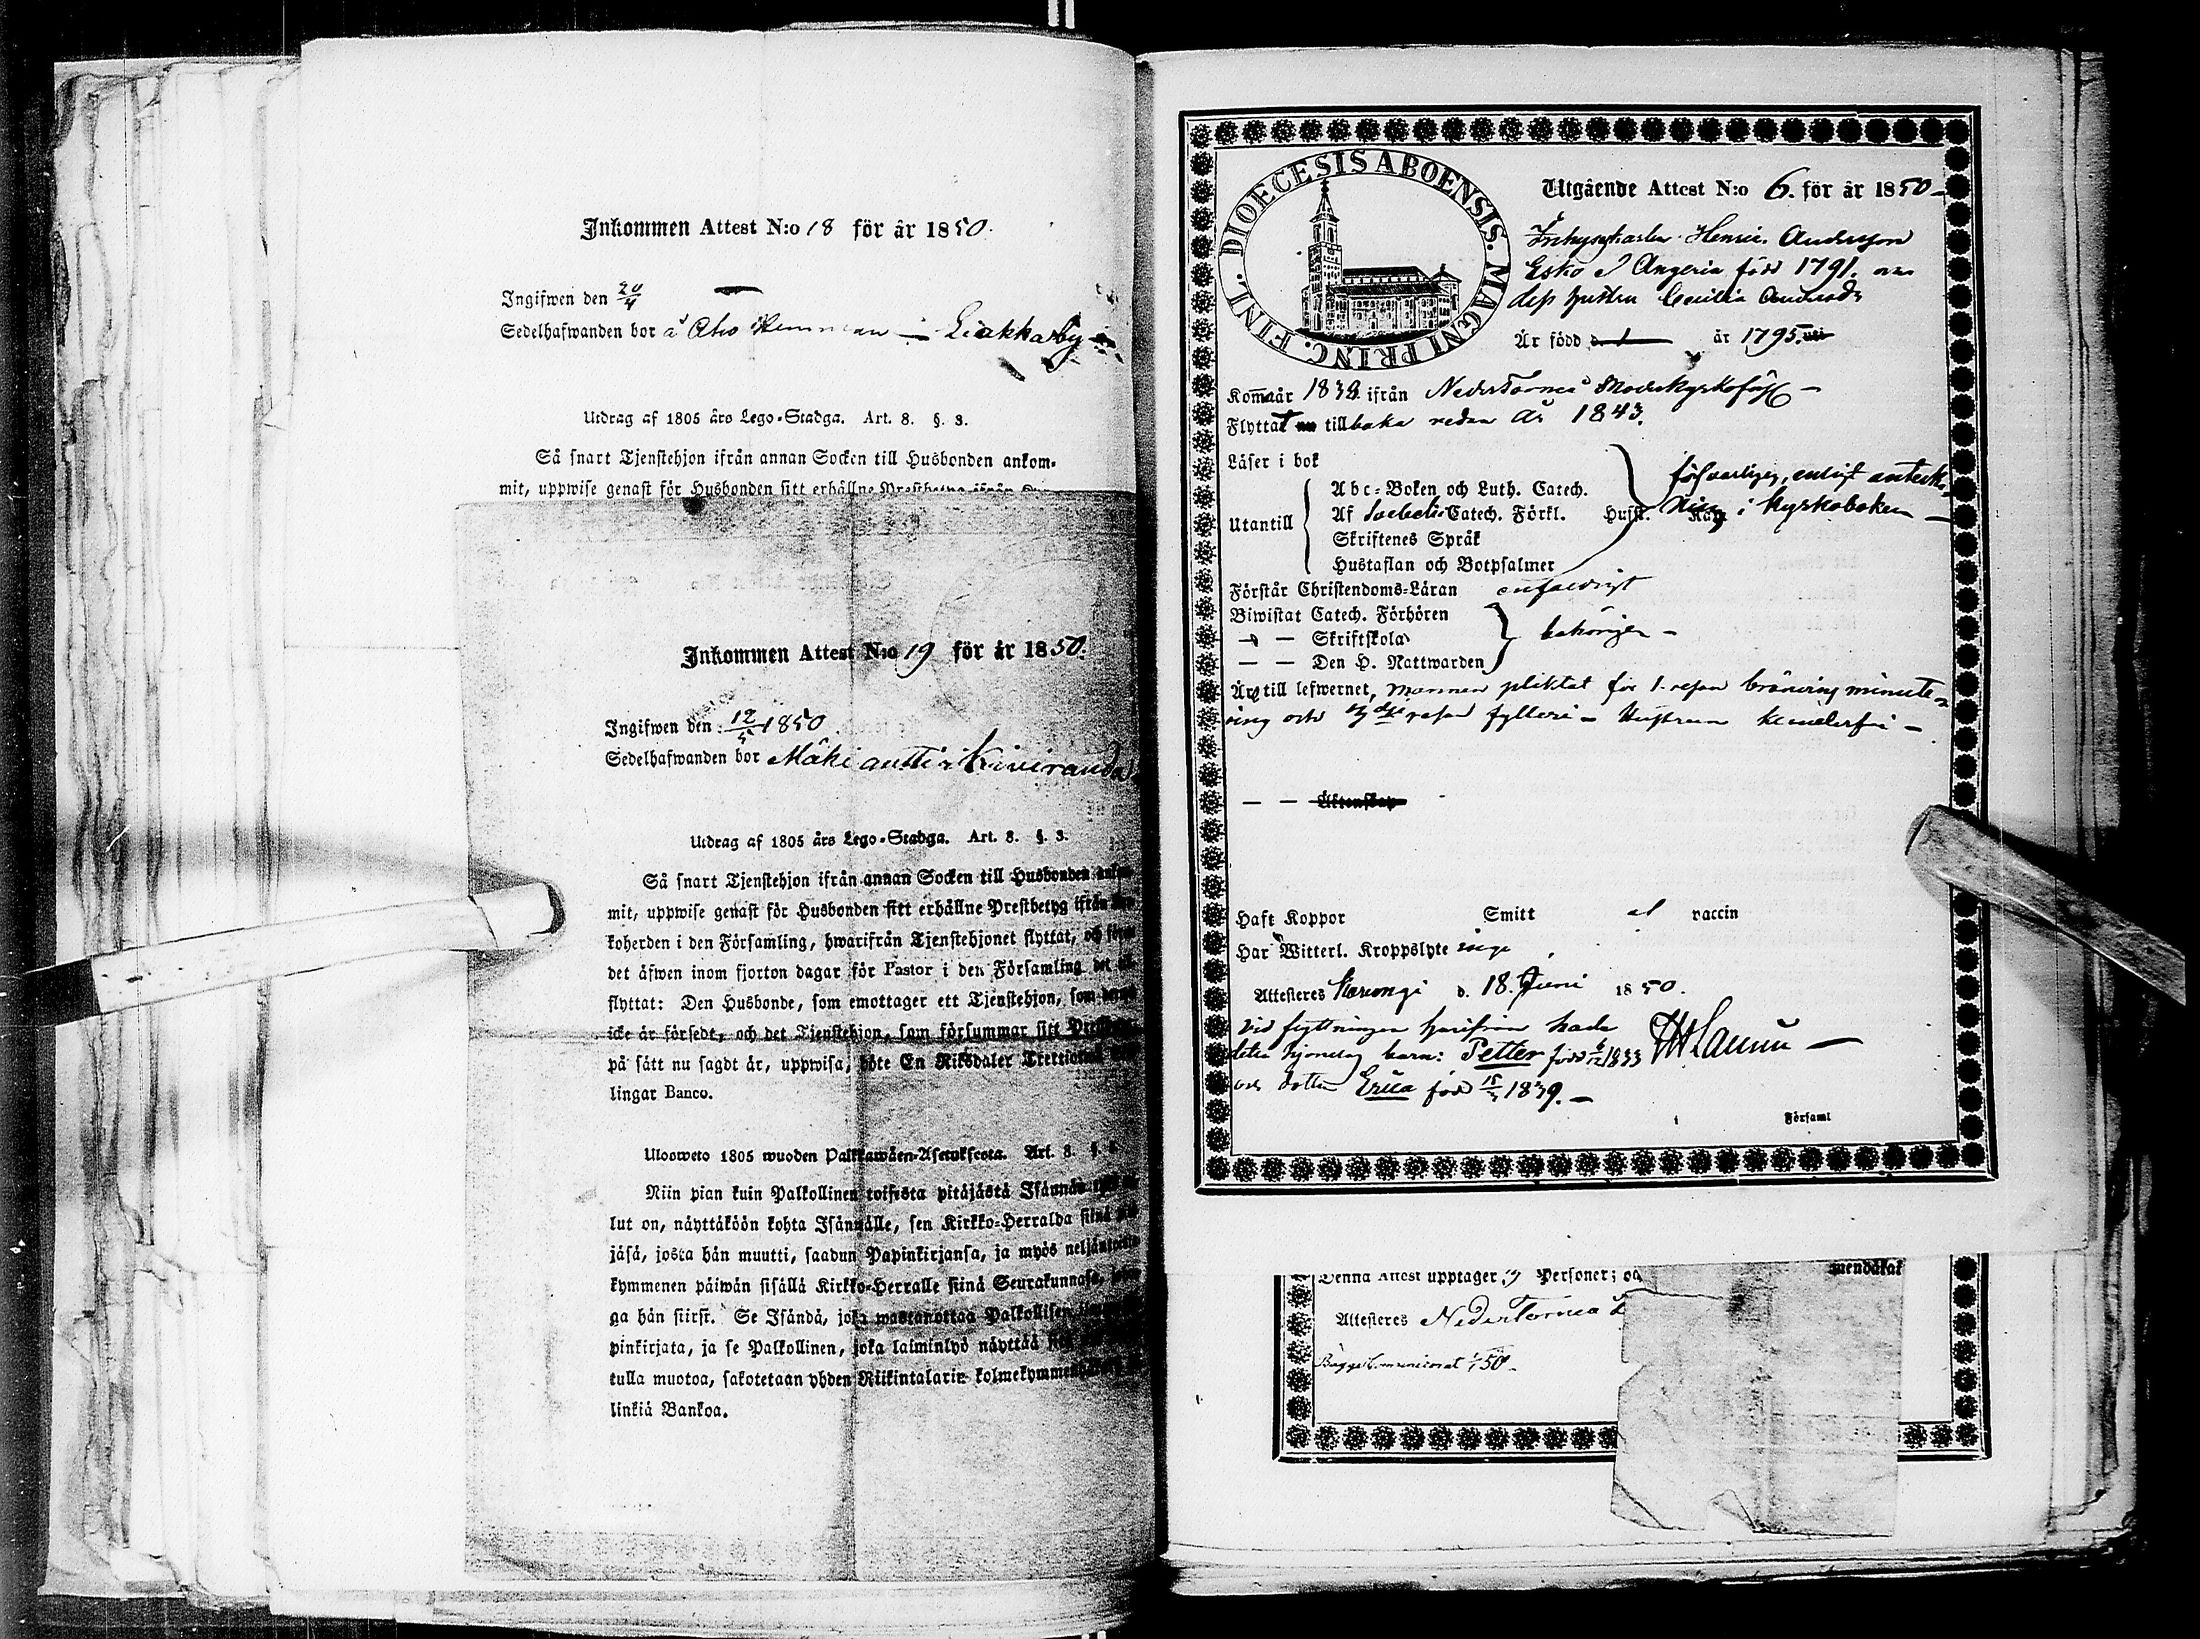 Inkommen Attest N:o 18 för år 1850.
Ingifwen den 20/4
Sedelhafwanden bor å Aho Hemman i Liakkaby
Utdrag af 1805 års Lego-Stadga. Art. 8. §. 3.
Så snart Tjenstehjon ifrån annan Socken till Husbonden ankom-
mit, uppwise genast för Husbonden sitt erhållne Prestbetyg ifrån
Inkommen Attest N:o 19 för år 1850.
Ingifwen den 12/5 1850
Sedelhafwanden bor Mäki antti i Kiviranda
Utdrag af 1805 års Lego-Stadga. Art. 8. §. 3.
Så snart Tjenstehjon ifrån annan Socken till Husbonden
mit, uppwise genast för Husbonden sitt erhållne Prestbetyg ifrån
koherden i den Församling, hwarifrån Tjenstehjonet flyttat, och
det äfwen inom fjorton dagar för Pastor i den Församling det
flyttat: Den Husbonde, som emottager ett Tjenstehjon, som
icke är försedt, och det Tjenstehjon, som försummar sitt
på sätt nu sagdt är, uppwisa, böte En Riksdaler Trettiotwå
lingar Banco.
Ulosweto 1805 wuoden Palkkawäen-Asetuksesta. Art. 8. §.
Niin pian kuin Palkollinen toisesta pitäjästä Isännän
lut on, näyttäköön kohta Isännälle, sen Kirkko-Herralda siinä
jäsä, josta hän muutti, saadun Papinkirjansa, ja myös neljäntoista
kymmenen päiwän sisällä Kirkko-Herralle siinä Seurakunnasa,
ga hän siirsi. Se Isändä, joka wastanottaa Palkollisen
pinkirjata, ja se Palkollinen, joka laiminlyö näyttää
tulla muotoa, sakotetaan yhden Riikintalarin kolmekymmen
linkiä Bankoa.
DIOECESIS ABOENSIS. MAGNI PRINC. FINL.
Utgående Attest N:o 6. för år 1850
Inhysekarlen Henric Andersson
Esko I Angeria född 1791. och
dess hustru Cecilia Andersd:r
Är född d. 1 år 1795.
Kom år 1832 ifrån Neder Torneå Moderkyrkoförs
Flyttat nu tillbaka redan år 1843.
Läser i bok försvarligen, enligt anteck-
Utantill Abc-Boken och Luth. Catech.
Af Svebelii Catech. Förkl. Hust. ning i kyrkoboken
Skriftenes Språk
Hustaflan och Botpsalmer
Förstår Christendoms-Läran enfaldigt
Biwistat Catech. Förhören
— — Skriftskola behörigen
— — Den H. Nattwarden
Är till lefwernet, mannen pliktat för 1. resan bränvins minute-
ring och resan fylleri - Hustrun klanderfri
— — Äktenskap
Haft Koppor Smitt af vaccin
Har Witterl. Kroppslyte inga
Attesteres Karungi d. 18. Juni 1850.
Vid flyttningen härifrån hade
detta hjonelag barn: Petter född 6/12 1833
och dotter Erica född 15/3 1839.
Församl
Denna Attest upptager Personer; oc
Attesteres Neder Torneå
Bägge Communicerat 1/1 50